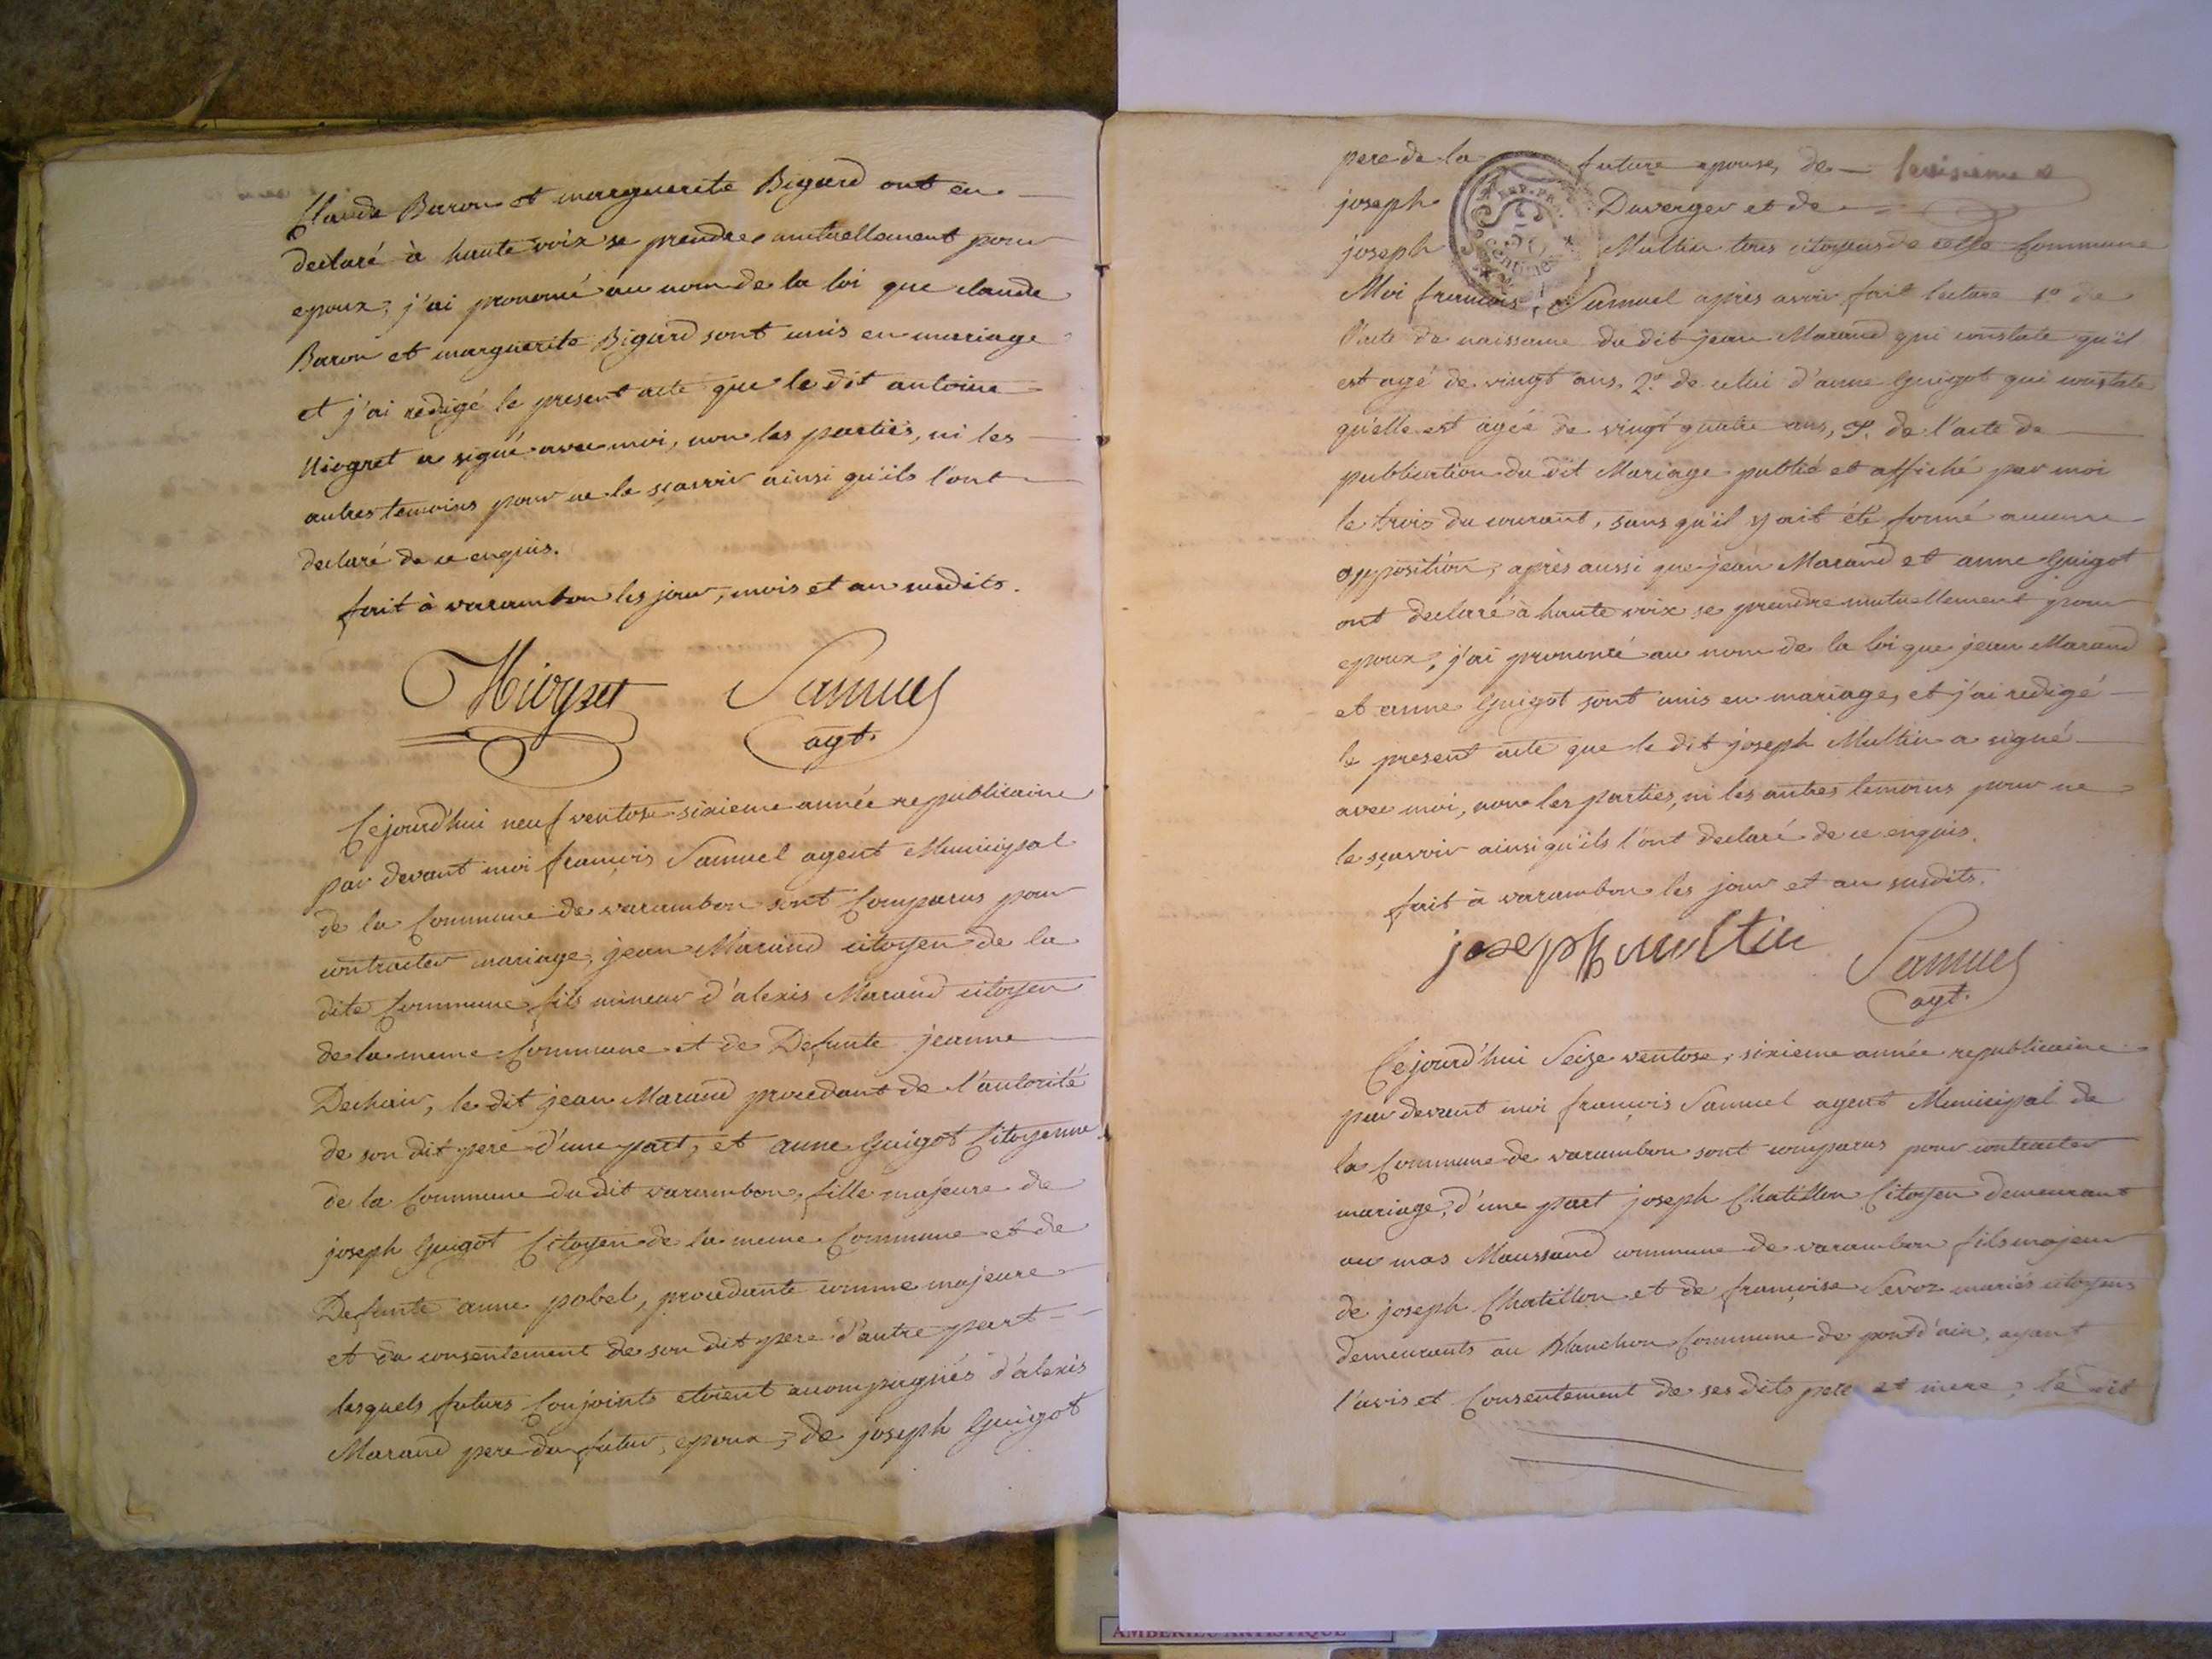 Claude Baron et marguerite Bigard ont en
declaré à haute voix se prendre mutuellement pour
epoux; j'ai prononcé au nom de la loi que claude
Baron et marguerite Bigard sont unis en mariage
et j'ai redigé le present acte que le dit antoine
Niogret a signé avec moi, non les parties, ni les
autres temoins pour ne le sçavoir ainsi qu'ils l'ont
declaré de ce enquis.
fait à varambon les jour, mois et an susdits.
Niogret Samuel
agt.
Cejourd'hui neuf ventose sixieme année republicaine
par devant moi françois Samuel agent Municipal
de la Commune de varambon sont Comparus pour
contracter mariage, jean Marand citoyen de la
dite Commune fils mineur d'alexis Marand citoyen
de la meme Commune et de Defunte jeanne
Dechair, le dit jean Marand procedant de l'autorité
de son dit pere d'une part, et anne Guigot Citoyenne
de la Commune du dit varambon, fille majeure de
joseph Guigot Citoyen de la meme Commune et de
Defunte anne pobel, procedante comme majeure
et du consentement de son dit pere d'autre part
lesquels futurs Conjoints etoient acompagnés d'alexis
Marand pere du futur epoux, de joseph Guigot
pere de la future epouse, de
joseph Duverger et de
joseph Multin tous citoyens de cette Commune
Moi françois Samuel après avoir fait lecture 1º de
l'acte de naissance du dit jean Marand qui constate qu'il
est agé de vingt ans, 2º de celui d'anne Guigot qui constate
qu'elle est agée de vingt quatre ans, 3º de l'acte de
publication du dit Mariage publié et affiché par moi
le trois du courant, sans qu'il y ait été formé aucune
opposition, après aussi que jean Marand et anne Guigot
ont declaré à haute voix se prendre mutuellement pour
epoux, j'ai prononcé au nom de la loi que jean Marand
et anne Guigot sont unis en mariage, et j'ai redigé
le present acte que le dit joseph Multin a signé
avec moi, non les parties, ni les autres temoins pour ne
le sçavoir ainsi qu'ils l'ont declaré de ce enquis.
fait à varambon les jour et an susdits.
joseph multin Samuel
agt.
Cejourd'hui Seize ventose, sixieme année republicaine
par devant moi françois Samuel agent Municipal de
la Commune de varambon sont comparus pour contracter
mariage, d'une part joseph Chatillon Citoyen demeurant
au mas Maussand commune de varambon fils majeur
de joseph Chatillon et de françoise Sevoz mariés citoyens
demeurants au Blanchon Commune de pont d'ain, ayant
l'avis et Consentement de ses dits pere et mere, le dit
AMBERIEU ARTISTIQUE